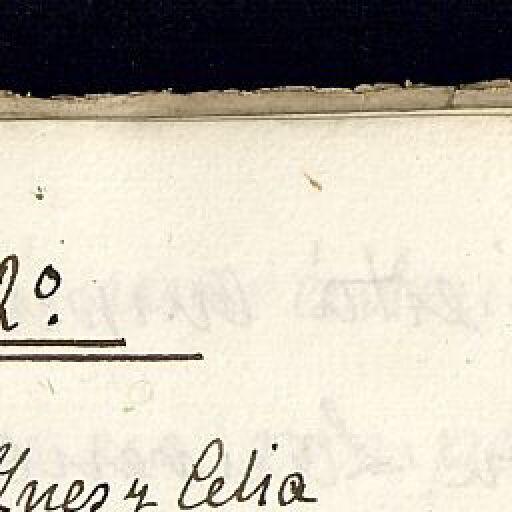 2º.
Ynes y Celia